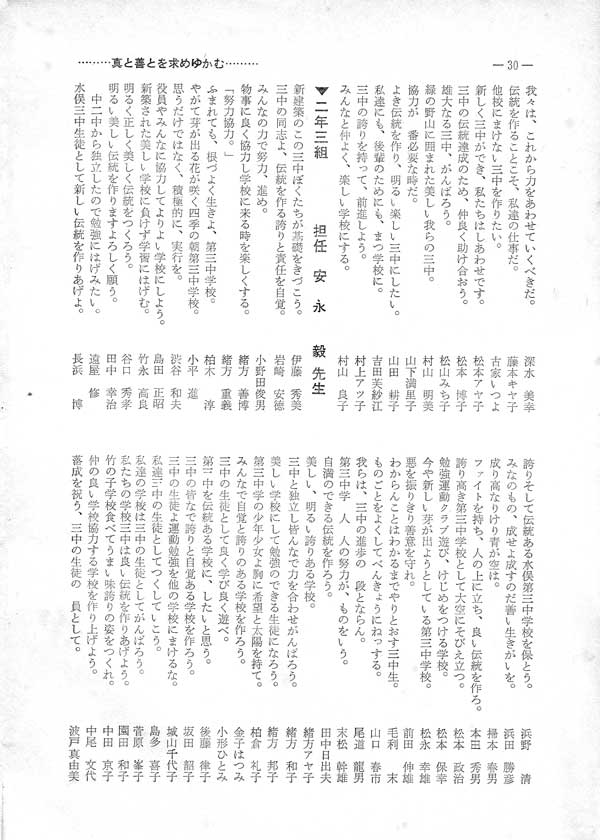 ―30―
………真と善とを求めゆかむ………
我々は、これから力をあわせていくべきだ。 深水 美幸
伝統を作ることこそ、私達の仕事だ。 藤本キヤ子
他校にまけない三中を作りたい。 古家いつよ
新しく三中ができ、私たちはしあわせです。 松本アヤ子
三中の伝統達成のため、仲良く助け合おう。 松本 博子
雄大なる三中、がんばろう。 松山みち子
緑の野山に囲まれた美しい我らの三中。 村山 明美
協力が 番必要な時だ。 山下満里子
よき伝統を作り、明るい楽しい三中にしたい。 山田 耕子
私達にも、後輩のためにも、まつ学校に。 吉田芙紗江
三中の誇りを持って、前進しよう。 村上アツ子
みんなと仲よく、楽しい学校にする。 村山 良子
▼二年三組 担任 安永 毅先生
新建築のこの三中ぼくたちが基礎をきづこう。 伊藤 秀美
三中の同志よ、伝統を作る誇りと責任を自覚。 岩崎 安徳
みんなの力で努力、進め。 小野田俊男
物事に良く協力し学校に来る時を楽しくする。 緒方 善博
「努力協力。」 緒方 重義
ふまれても、根づよく生きよ、第三中学校。 柏木 淳
やがて芽が出る花が咲く四季の朝第三中学校。 小平 進
思うだけではなく、積極的に、実行を。 渋谷 和夫
役員やみんなに協力してよりよい学校にしよう。 島田 正昭
新築された美しい学校に負けず学習にはげむ。 竹永 高良
明るく正しく美しく伝統をつくろう。 谷口 秀孝
明るい美しい伝統を作りますよろしく願う。 田中 幸治
中二中から独立したので勉強にはげみたい。 遠屋 修
水俣三中生徒として新しい伝統を作りあげよ。 長浜 博
誇りそして伝統ある水俣第三中学校を保とう。 浜野 清
みなのもの、成せよ成すのだ善い生きがいを。 浜田 勝彦
成り高なりけり青が空は。 掃本 春男
ファイトを持ち、人の上に立ち、良い伝統を作ろ。 本田 秀男
誇り高き第三中学校として大空にそびえ立つ。 松本 政治
勉強運動クラブ遊び、けじめをつける学校。 松本 保幸
今や新しい芽が出ようとしている第三中学校。 松永 幸雄
悪を振りきり善意を守れ。 前田 伸雄
わからんことはわかるまでやりとおす三中生。 毛利 末
ものごとをよくしてべんきょうにねっする。 山口 春市
我らは、三中の進歩の 段とならん。 尾道 龍男
第三中学 人 人の努力が、ものをいう。 末松 幹雄
自満のできる伝統を作ろう。 田中日出夫
美しい、明るい誇りある学校。 緒方アヤ子
三中と独立し皆んなで力を合わせがんばろう。 緒方 和子
美しい学校にして勉強のできる生徒になろう。 緒方 邦子
第三中学の少年少女よ胸に希望と太陽を持て。 柏倉 礼子
みんなで自覚と誇りのある学校を作ろう。 金子はつみ
三中の生徒として良く学び良く遊べ。 小形ひとみ
第三中を伝統ある学校に、したいと思う。 後藤 律子
三中の皆なで誇りと自覚ある学校を作ろう。 坂田 韶子
三中の生徒よ運動勉強を他の学校にまけるな。 城山千代子
私達三中の生徒としてつくしていこう。 島多 喜子
私達の学校は三中の生徒としてがんばろう。 菅原 峯子
私たちの学校三中は良い伝統を作りあげよう。 園田 和子
竹の子学校食べてうまい味誇りの姿をつくれ。 中田 京子
仲の良い学校協力する学校を作り上げよう。 中尾 文代
落成を祝う、三中の生徒の 員として。 波戸真由美